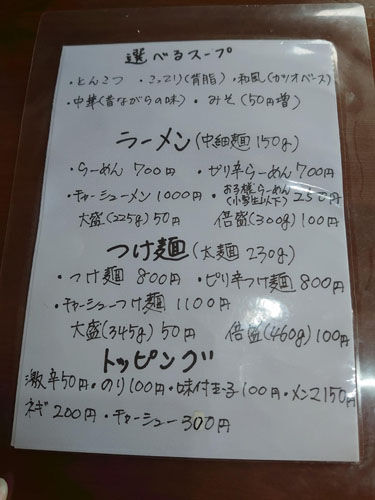 選べるスープ
・とんこつ ・こってり(背脂) ・和風(カツオベース)
・中華(昔ながらの味) ・みそ(50円増)
ラーメン(中細麺150g)
・らーめん 700円 ・ピリ辛らーめん700円
・チャーシューメン1000円 ・お子様らーめん(小学生以下)250円
大盛(225g)50円 倍盛(300g)100円
つけ麺(太麺230g)
・つけ麺 800円 ・ピリ辛つけ麺800円
・チャーシューつけ麺1100円
大盛(345g)50円 倍盛(460g)100円
トッピング
激辛50円・のり100円・味付玉子100円・メンマ150円
ネギ200円・チャーシュー300円